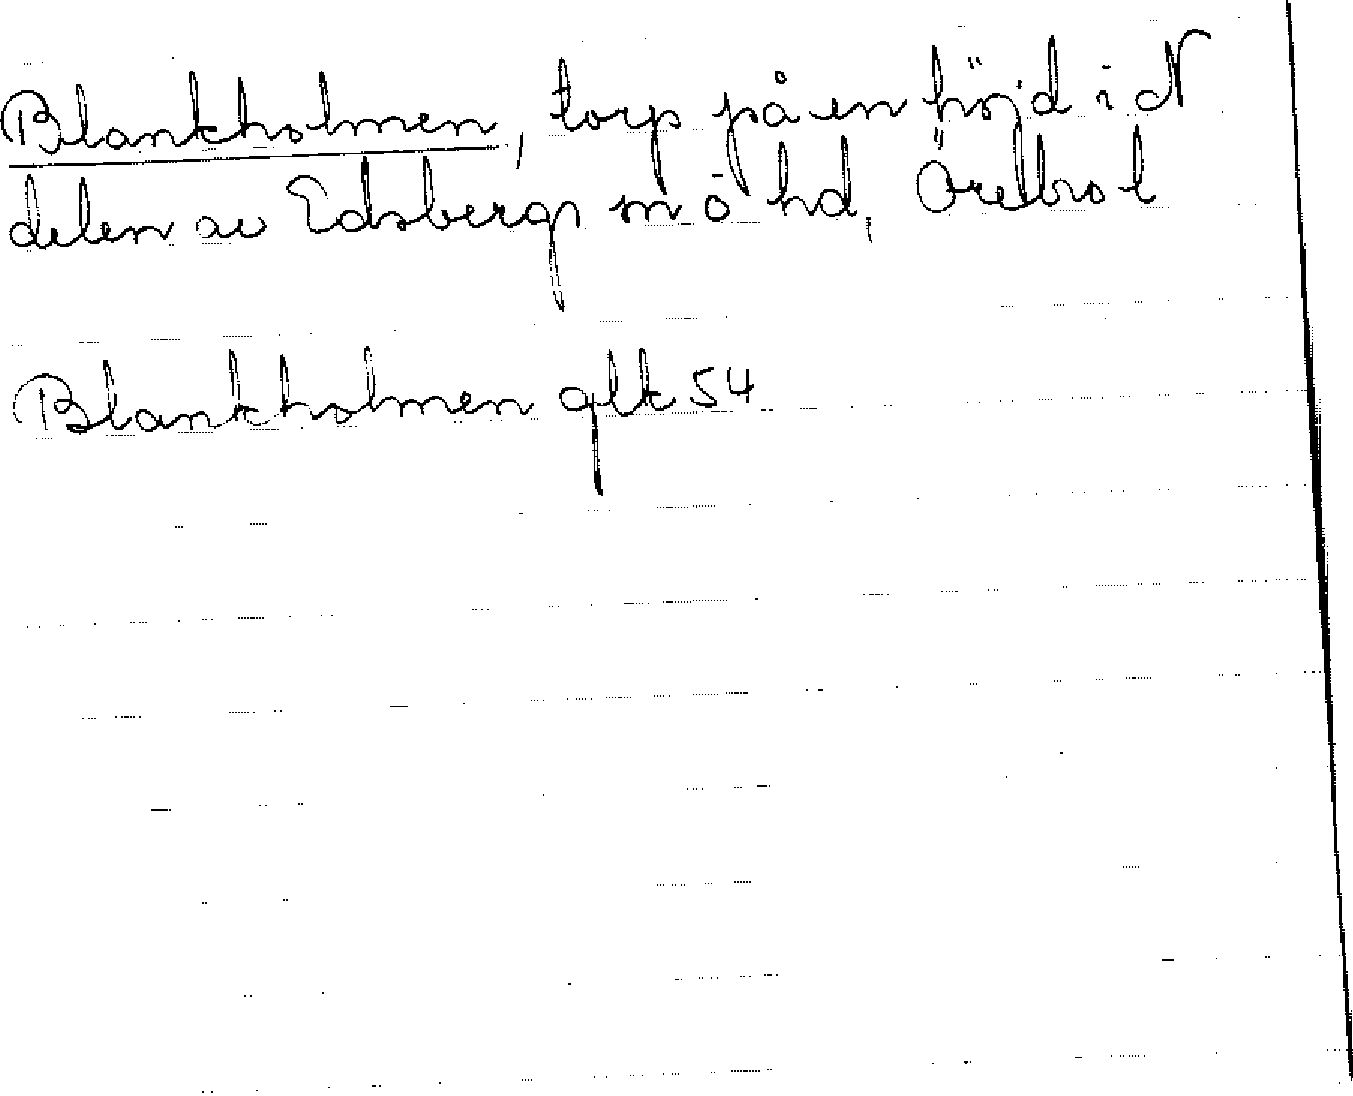 Blankholmen, torp på en höjd i N
delen av Edsbergs sn o hd, Örebro l
Blankholmen glk 54